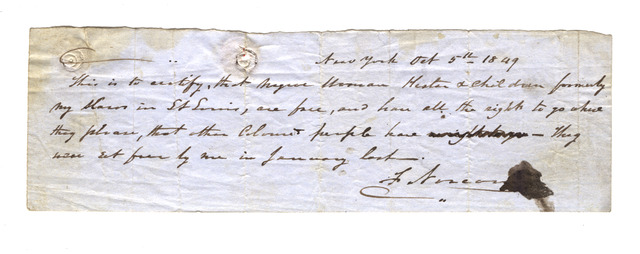 New York Oct 5th 1849
This is to certify, that Negro Woman Hester & Children formerly
my slaves in St Louis, are free, and have all the rights to go where
they please, that other Colored people have — They
were set free by me in January last.
F